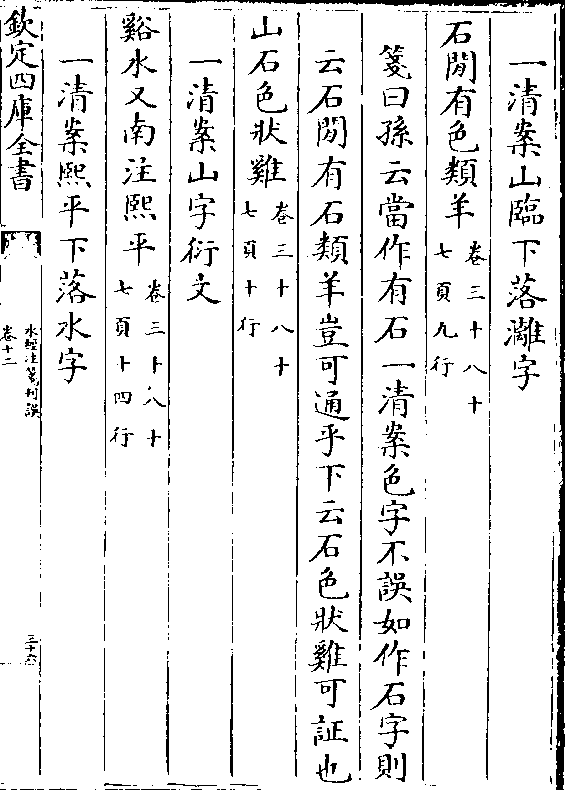 一清案山臨下落灕字
石閒有色類羊卷三十八十七頁九行
箋曰孫云當作有石一清案色字不誤如作石字則
云石閒有石類羊豈可通乎下云石色狀雞可証也
山石色狀雞卷三十八十七頁十行
一清案山字衍文
谿水又南注熙平卷三十八十七頁十四行
一清案熙平下落水字
欽定四庫全書
水經注箋刊誤
卷十二
三十六